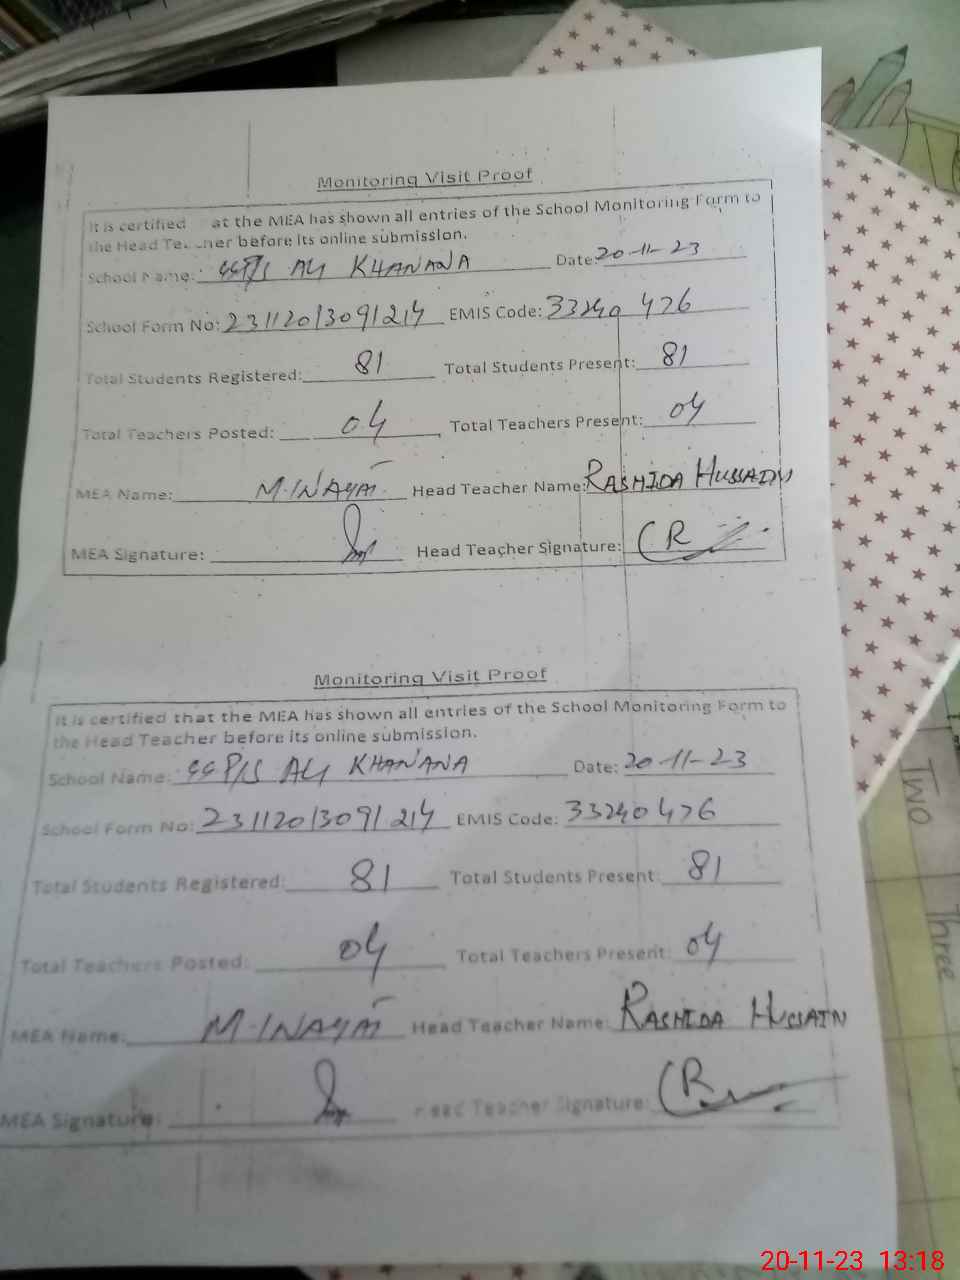 Monitoring Visit Proof
It is certified at the MEA has shown all entries of the School Monitoring Form to
the Head Teacher before its online submission.
School Name: GGP/S Ali KHANANA Date: 20-11-23
School Form No: 23112013091214 EMIS Code: 33240476
Total Students Registered: 81 Total Students Present: 81
Total Teachers Posted: 04 Total Teachers Present: 04
MEA Name: M. INAYAT Head Teacher Name: RASHIDA HUSSAIN
MEA Signature: Head Teacher Signature: R
Monitoring Visit Proof
It is certified that the MEA has shown all entries of the School Monitoring Form to
the Head Teacher before its online submission.
School Name: GGP/S Ali KHANANA Date: 20-11-23
School Form No: 23112013091214 EMIS Code: 33240476
Total Students Registered: 81 Total Students Present: 81
Total Teachers Posted: 04 Total Teachers Present: 04
MEA Name: M. INAYAT Head Teacher Name: RASHIDA HUSSAIN
MEA Signature: Head Teacher Signature: R
Two
Three
20-11-23 13:18